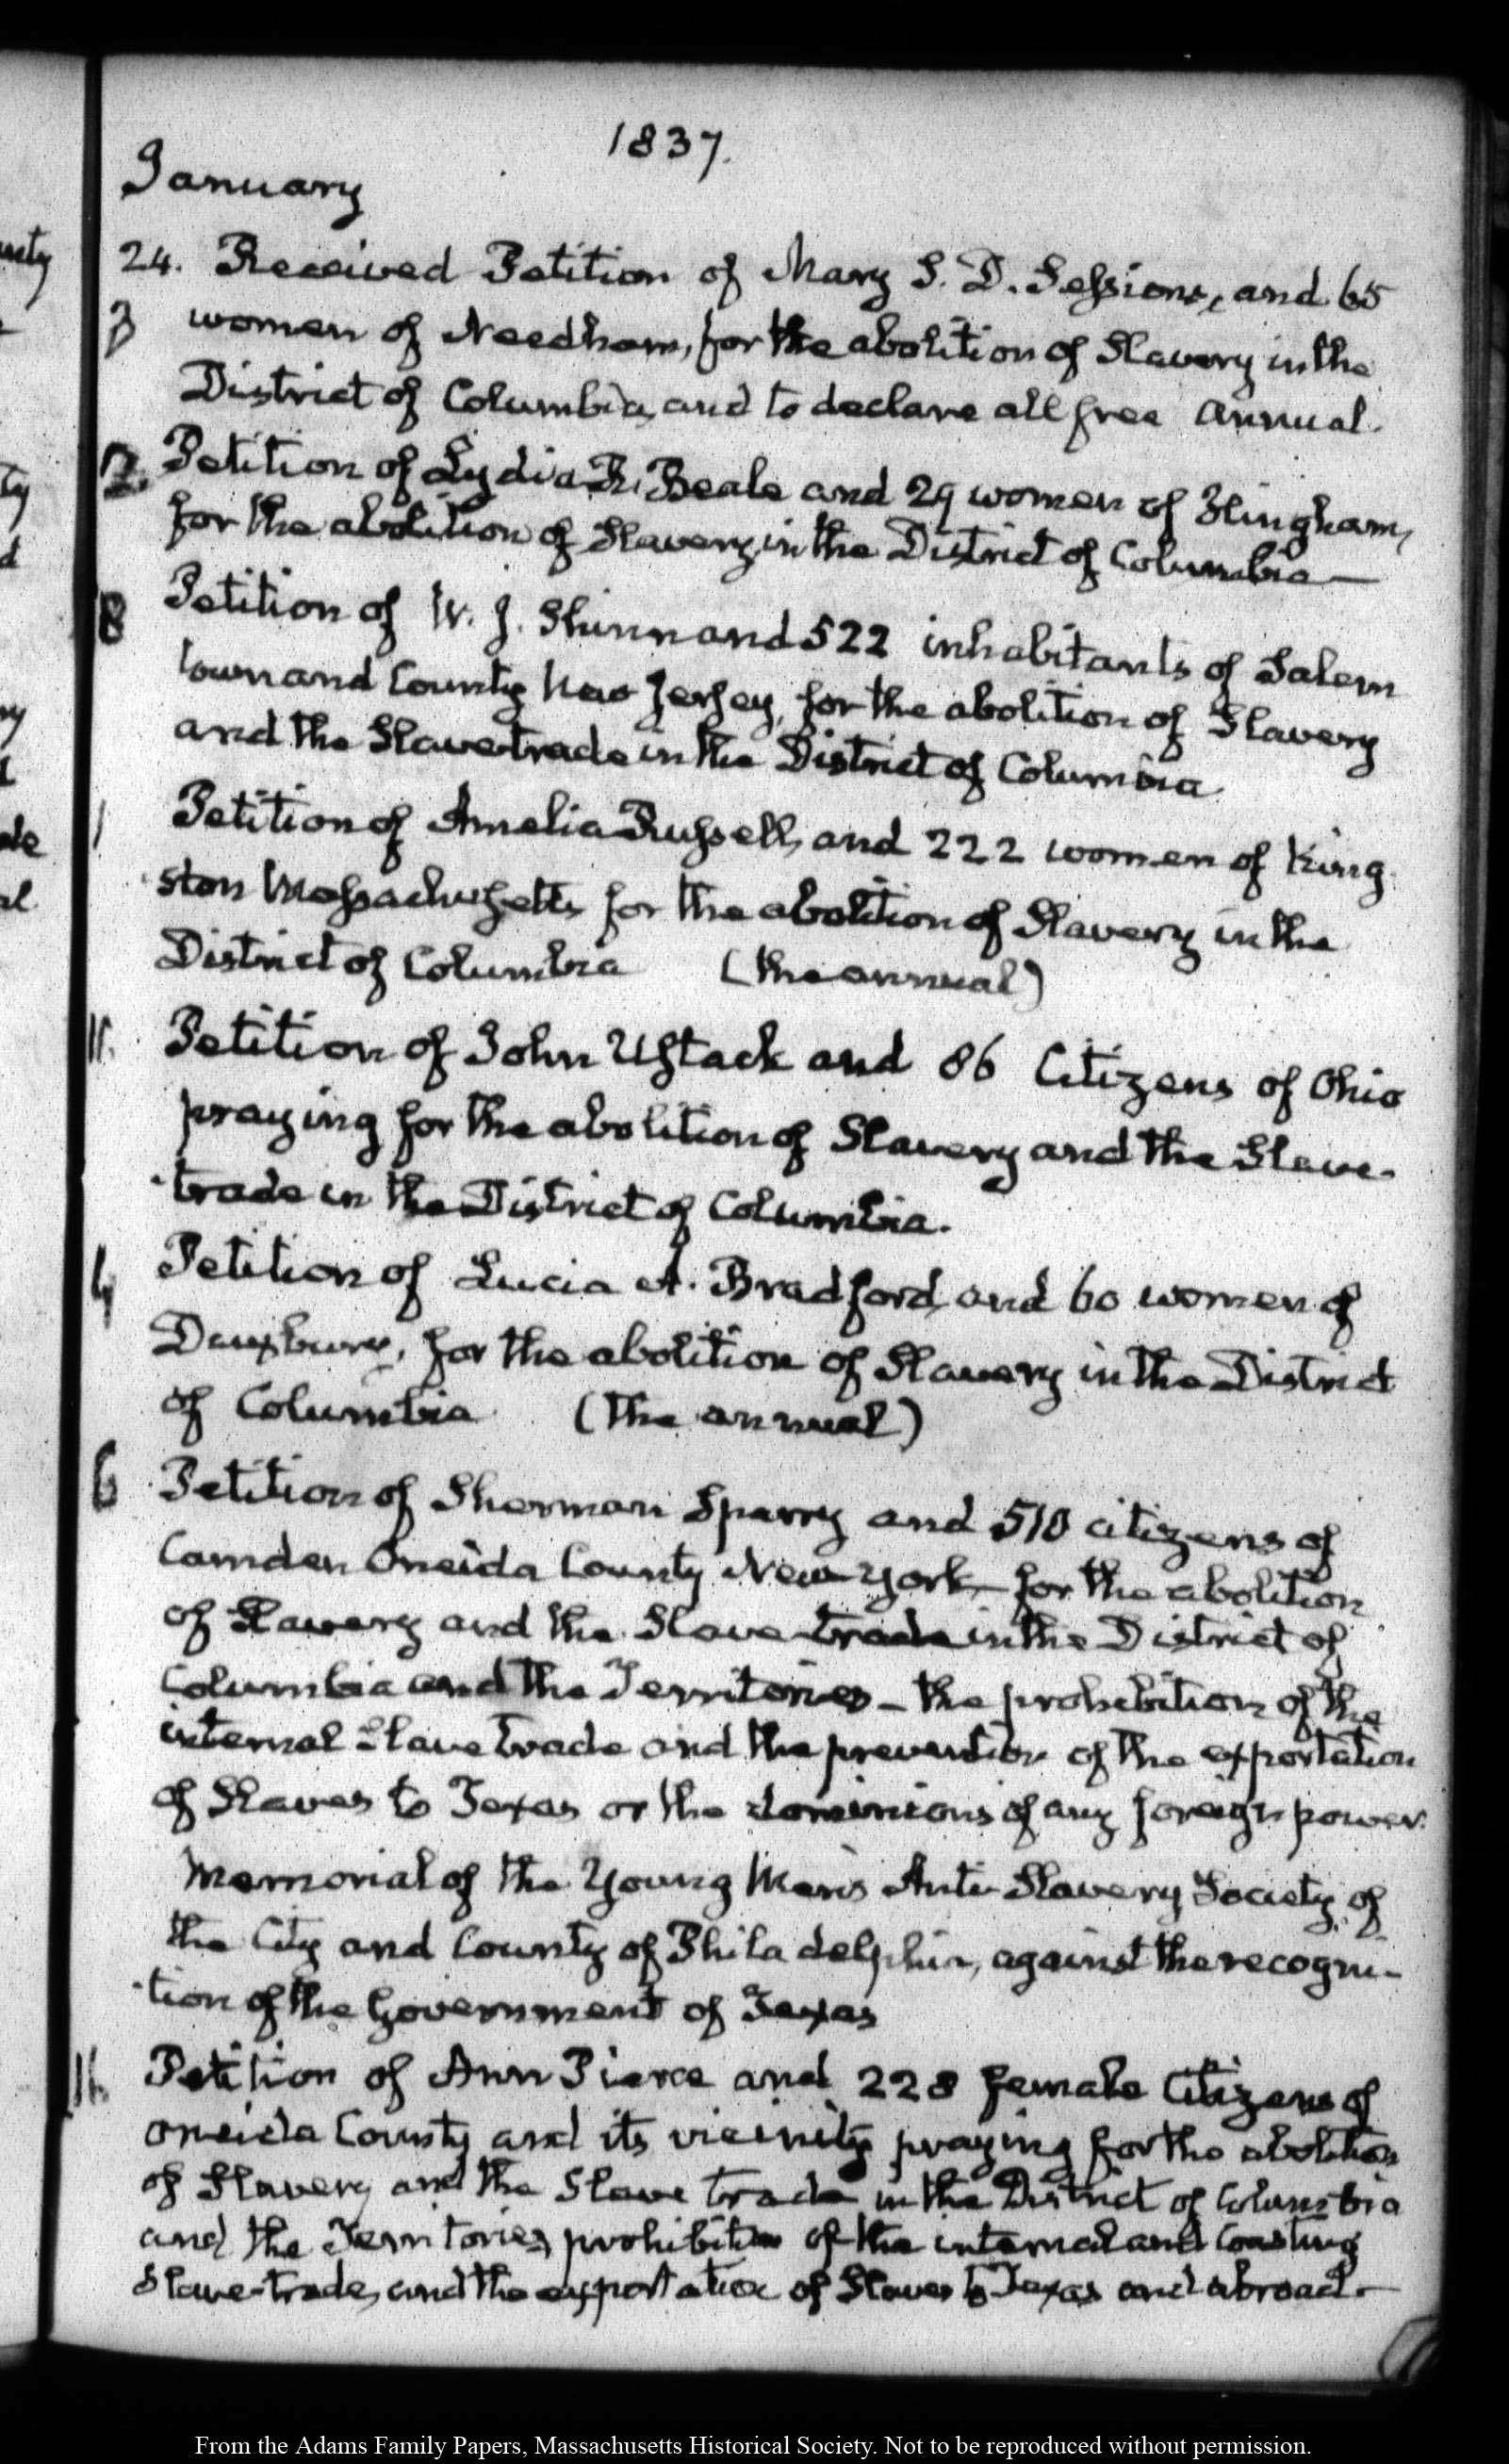 1837.
January
24. Received Petition of Mary S. D. Sessions, and 65
3 women of Needham, for the abolition of Slavery in the
District of Columbia, and to declare all free annual.
2. Petition of Lydia B. Beale and 29 women of Hingham,
for the abolition of Slavery in the District of Columbia—
8 Petition of W. J. Shinn and 522 inhabitants of Salem
town and County New Jersey, for the abolition of Slavery
and the Slave trade in the District of Columbia
1 Petition of Amelia Russell, and 222 women of King-
ston Massachusetts for the abolition of Slavery in the
District of Columbia (the annual)
11. Petition of John and 86 Citizens of Ohio
praying for the abolition of Slavery and the Slave-
trade in the District of Columbia.
4 Petition of Lucia A. Bradford, and 60 women of
Duxbury, for the abolition of Slavery in the District
of Columbia (the annual)
6 Petition of Sherman and 510 citizens of
Camden Oneida County New-York, for the abolition
of Slavery and the Slave-trade in the District of
Columbia and the Territories – the prohibition of the
internal Slave trade and the prevention of the exportation
of Slaves to Texas or the dominions of any foreign power.
Memorial of the Young Men's Anti-Slavery Society of
the City and County of Philadelphia, against the recogni-
tion of the Government of Texas
11. Petition of Ann Pierce and 228 female Citizens of
Oneida County and its vicinity praying for the abolition
of Slavery and the Slave trade in the District of Columbia
and the Territories, prohibition of the internal and Coasting
Slave-trade, and the exportation of Slaves to Texas and abroad.—
From the Adams Family Papers, Massachusetts Historical Society. Not to be reproduced without permission.